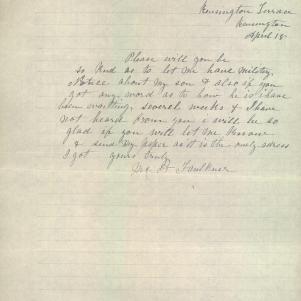 Kensington Terrace
Kensington
April 18
Please will you be
so kind as to let me have military
Notice about my son & also if you
got any word as to how he is i have
been waiting several weeks & I have
not heard from you i will be so
glad if you will let me know
& send my paper as it is the only adress
I got yours truly
Mrs Faulkner